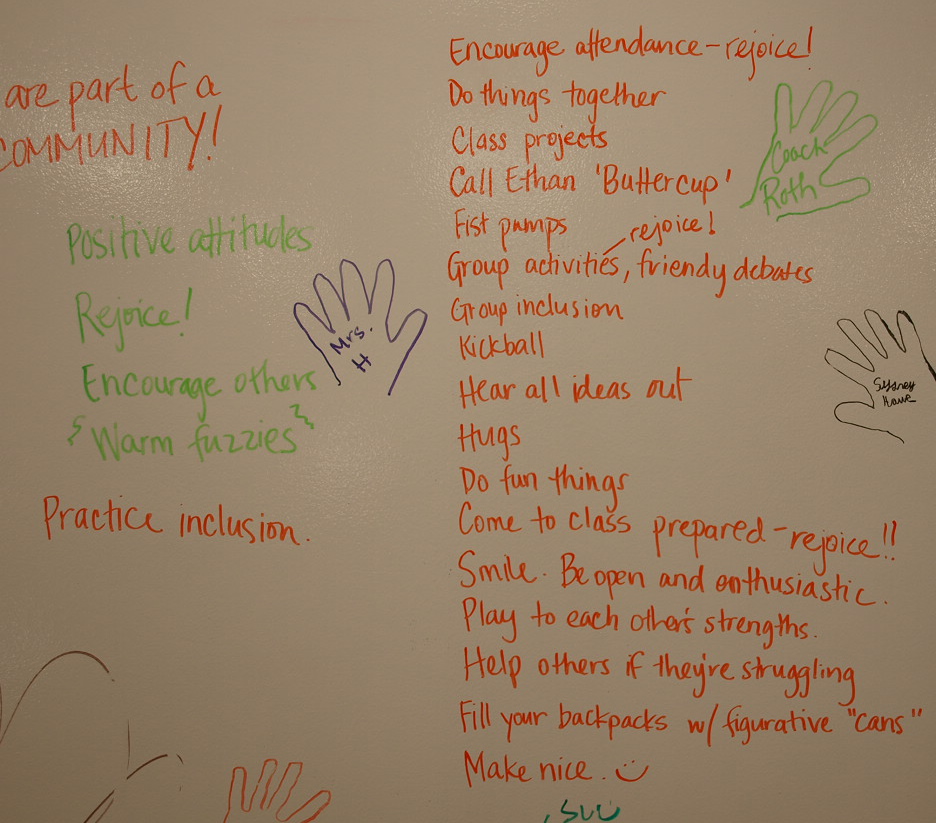 are part of a
COMMUNITY!
Positive attitudes
Rejoice!
Encourage others
Warm fuzzies
Practice inclusion.
Mrs.
H
Encourage attendance - rejoice!
Do things together
Class projects
Call Ethan 'Buttercup'
Fist pumps
rejoice!
Group activities, friendly debates
Group inclusion
Kickball
Hear all ideas out
Hugs
Do fun things
Come to class prepared - rejoice!!
Smile. Be open and enthusiastic.
Play to each other's strengths.
Help others if they're struggling
Fill your backpacks w/ figurative "cans"
Make nice.
Coach
Roth
Sydney